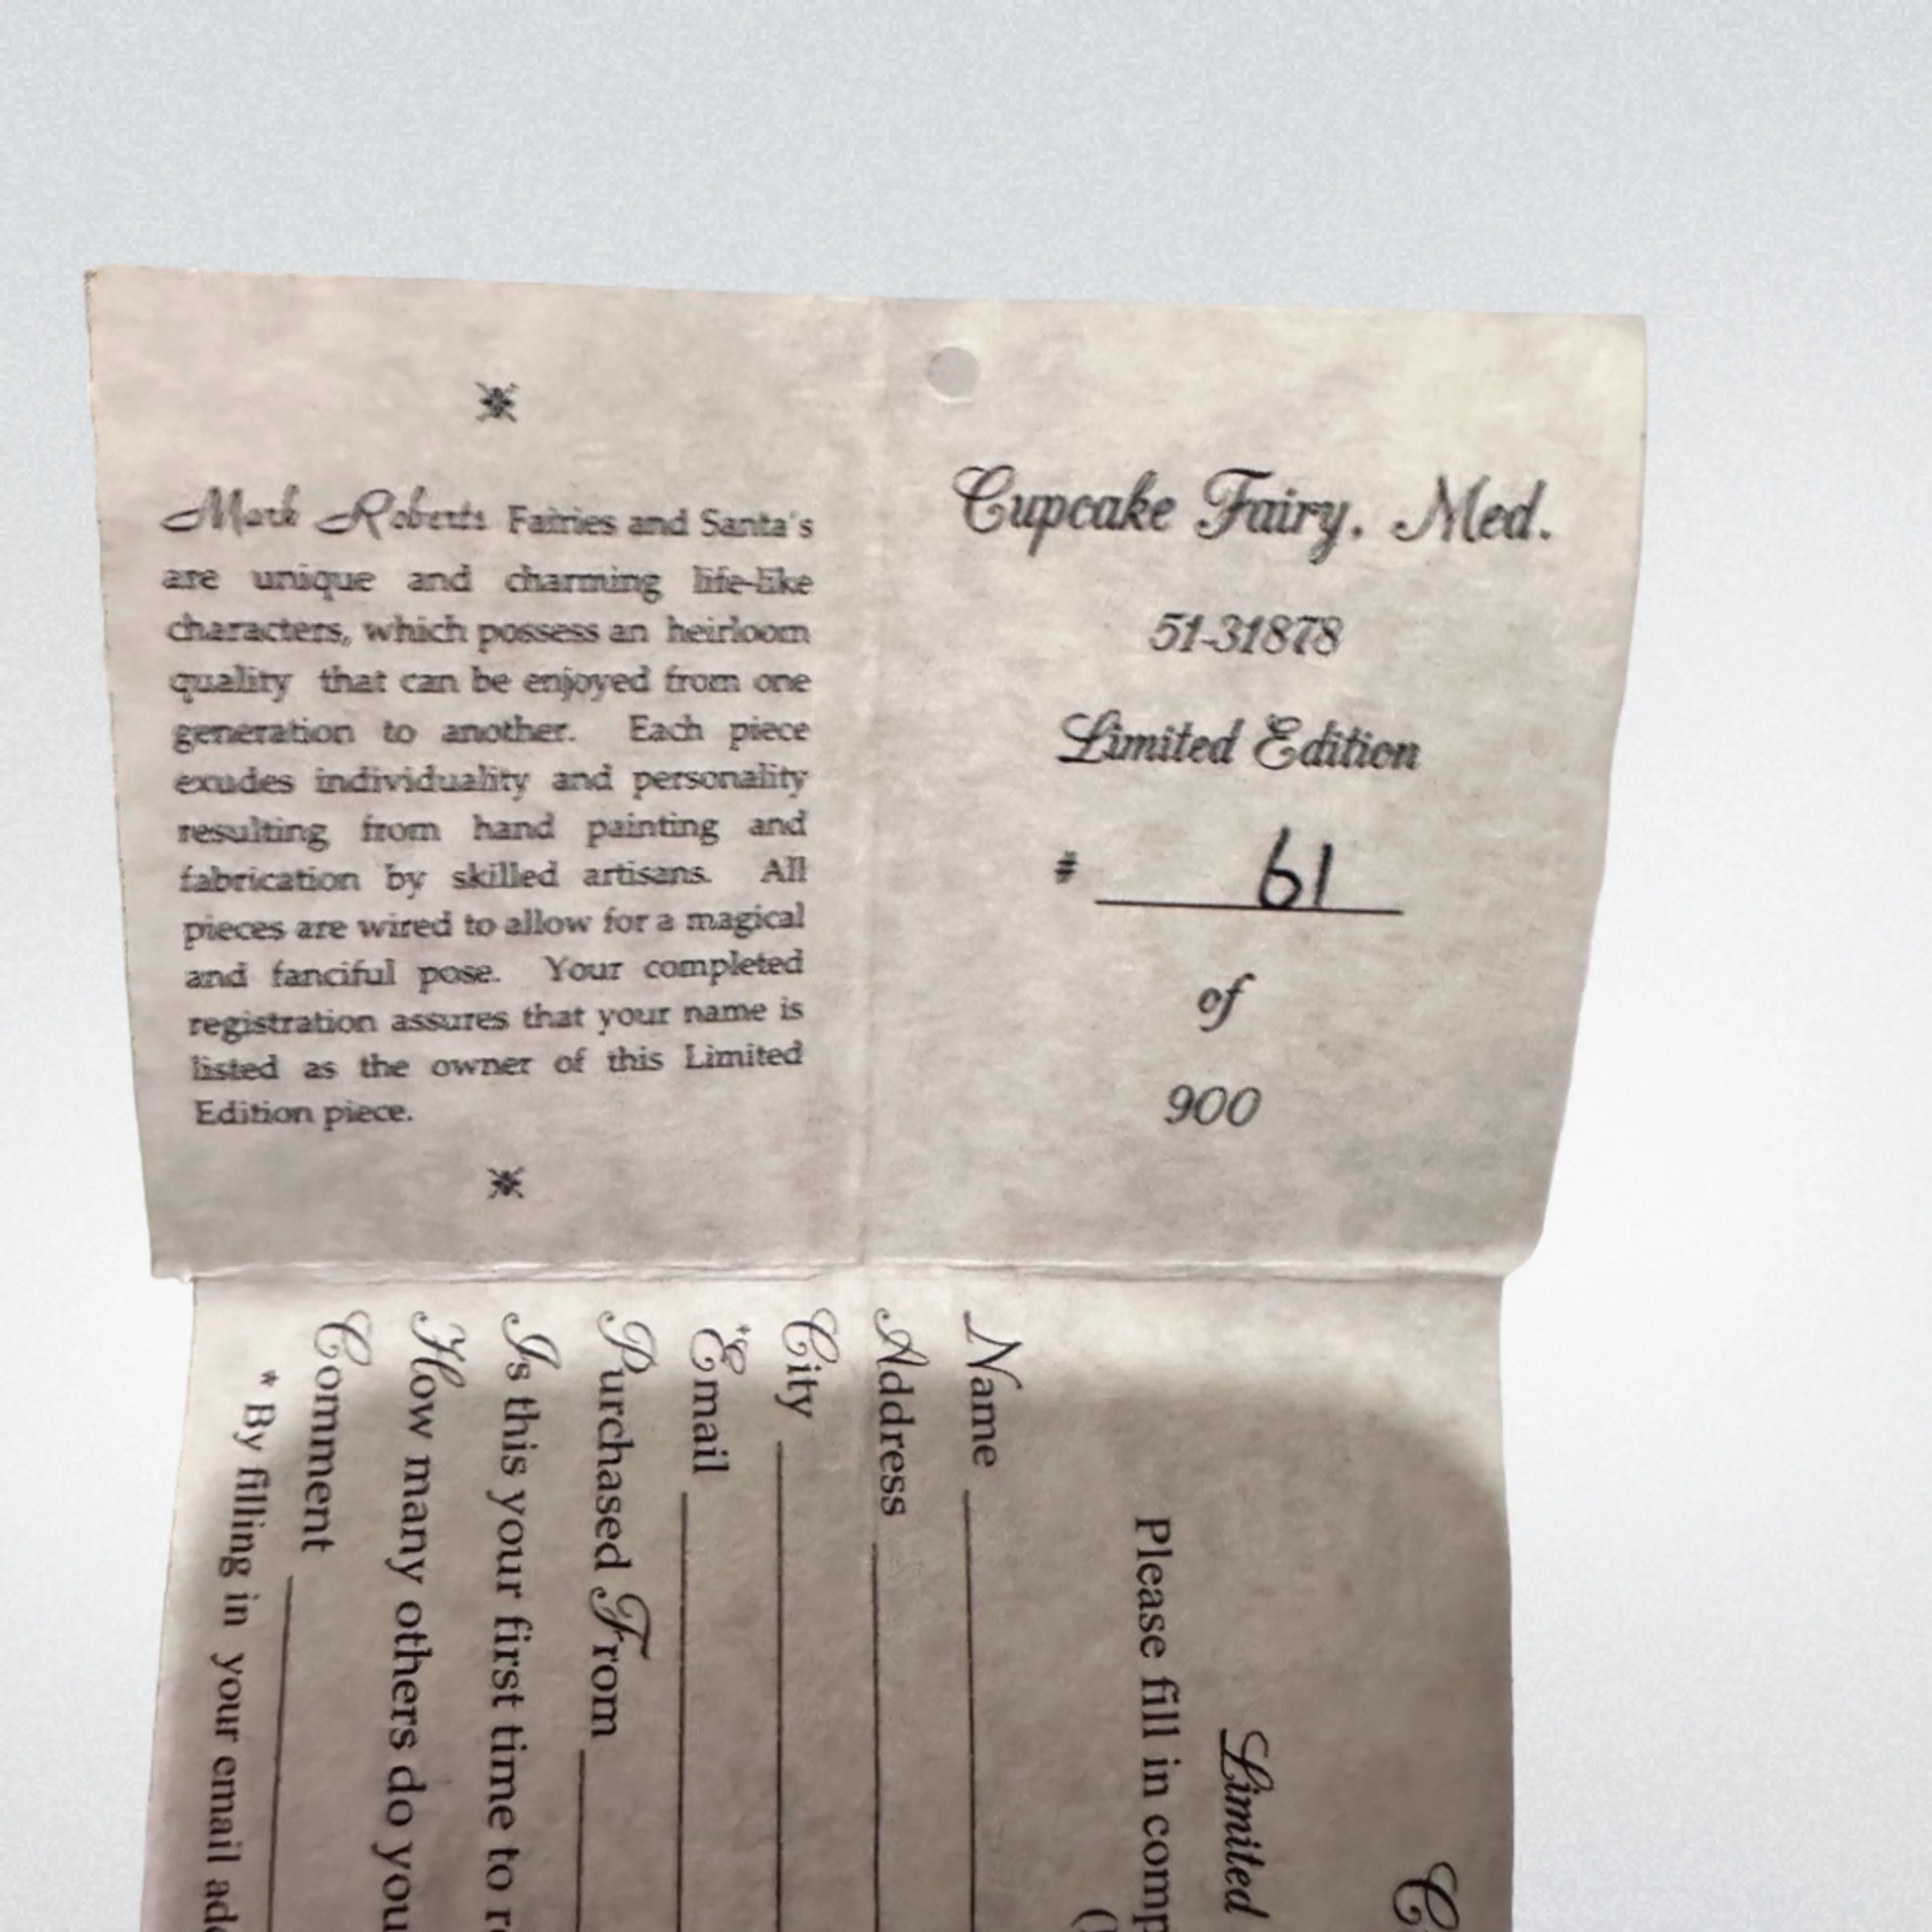 Mark Roberts Fairies and Santa's
are unique and charming life-like
characters, which possess an heirloom
quality that can be enjoyed from one
generation to another. Each piece
exudes individuality and personality
resulting from hand painting and
fabrication by skilled artisans. All
pieces are wired to allow for a magical
and fanciful pose. Your completed
registration assures that your name is
listed as the owner of this Limited
Edition piece.
Cupcake Fairy, Med.
51-31878
Limited Edition
# 61
of
900
Limited
Please fill in
Name
Address
City
*Email
Purchased From
Is this your first time to
How many others do you
Comment
* By filling in your email